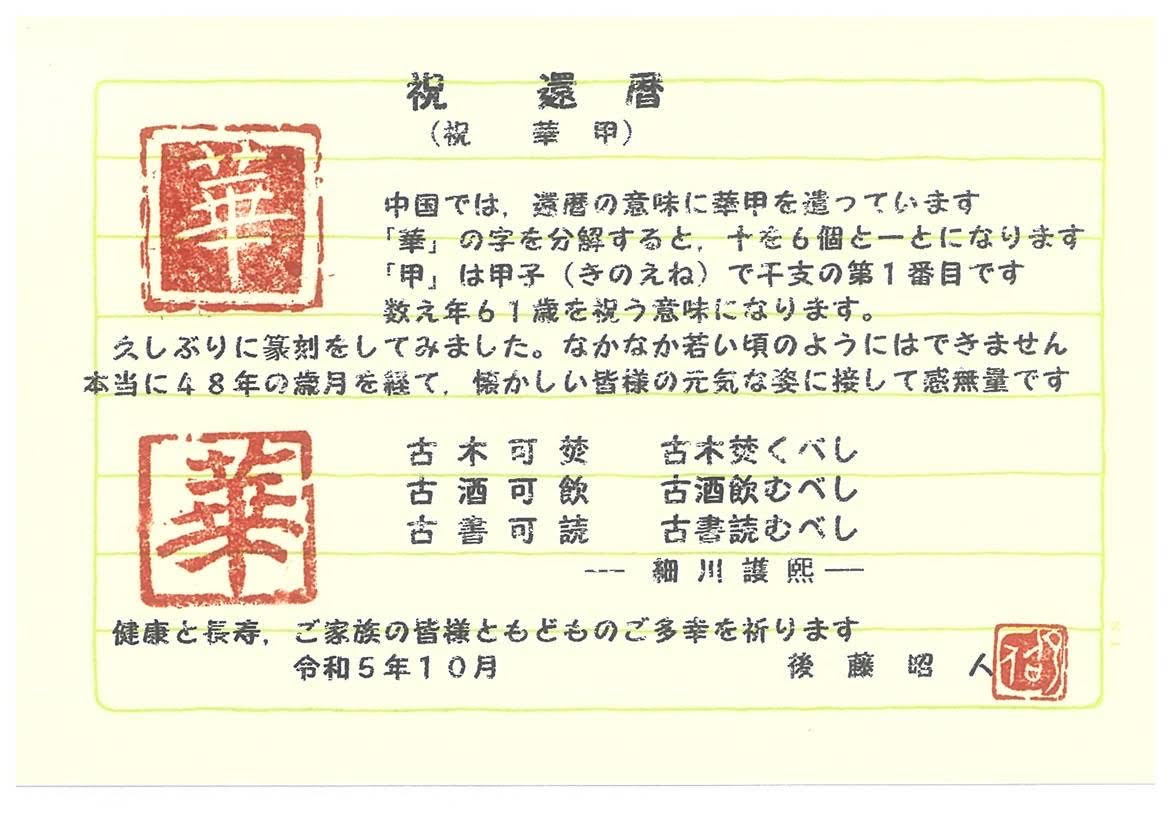 祝　還　暦
（祝　華　甲）
華
中国では，還暦の意味に華甲を遣っています
「華」の字を分解すると，十を６個と一とになります
「甲」は甲子（きのえね）で干支の第１番目です
数え年６１歳を祝う意味になります。
久しぶりに篆刻をしてみました。なかなか若い頃のようにはできません
本当に４８年の歳月を経て，懐かしい皆様の元気な姿に接して感無量です
華
古木可焚　古木焚くべし
古酒可飲　古酒飲むべし
古書可読　古書読むべし
--- 細川護熙 ──
健康と長寿，ご家族の皆様ともどものご多幸を祈ります
令和５年１０月　後藤昭人